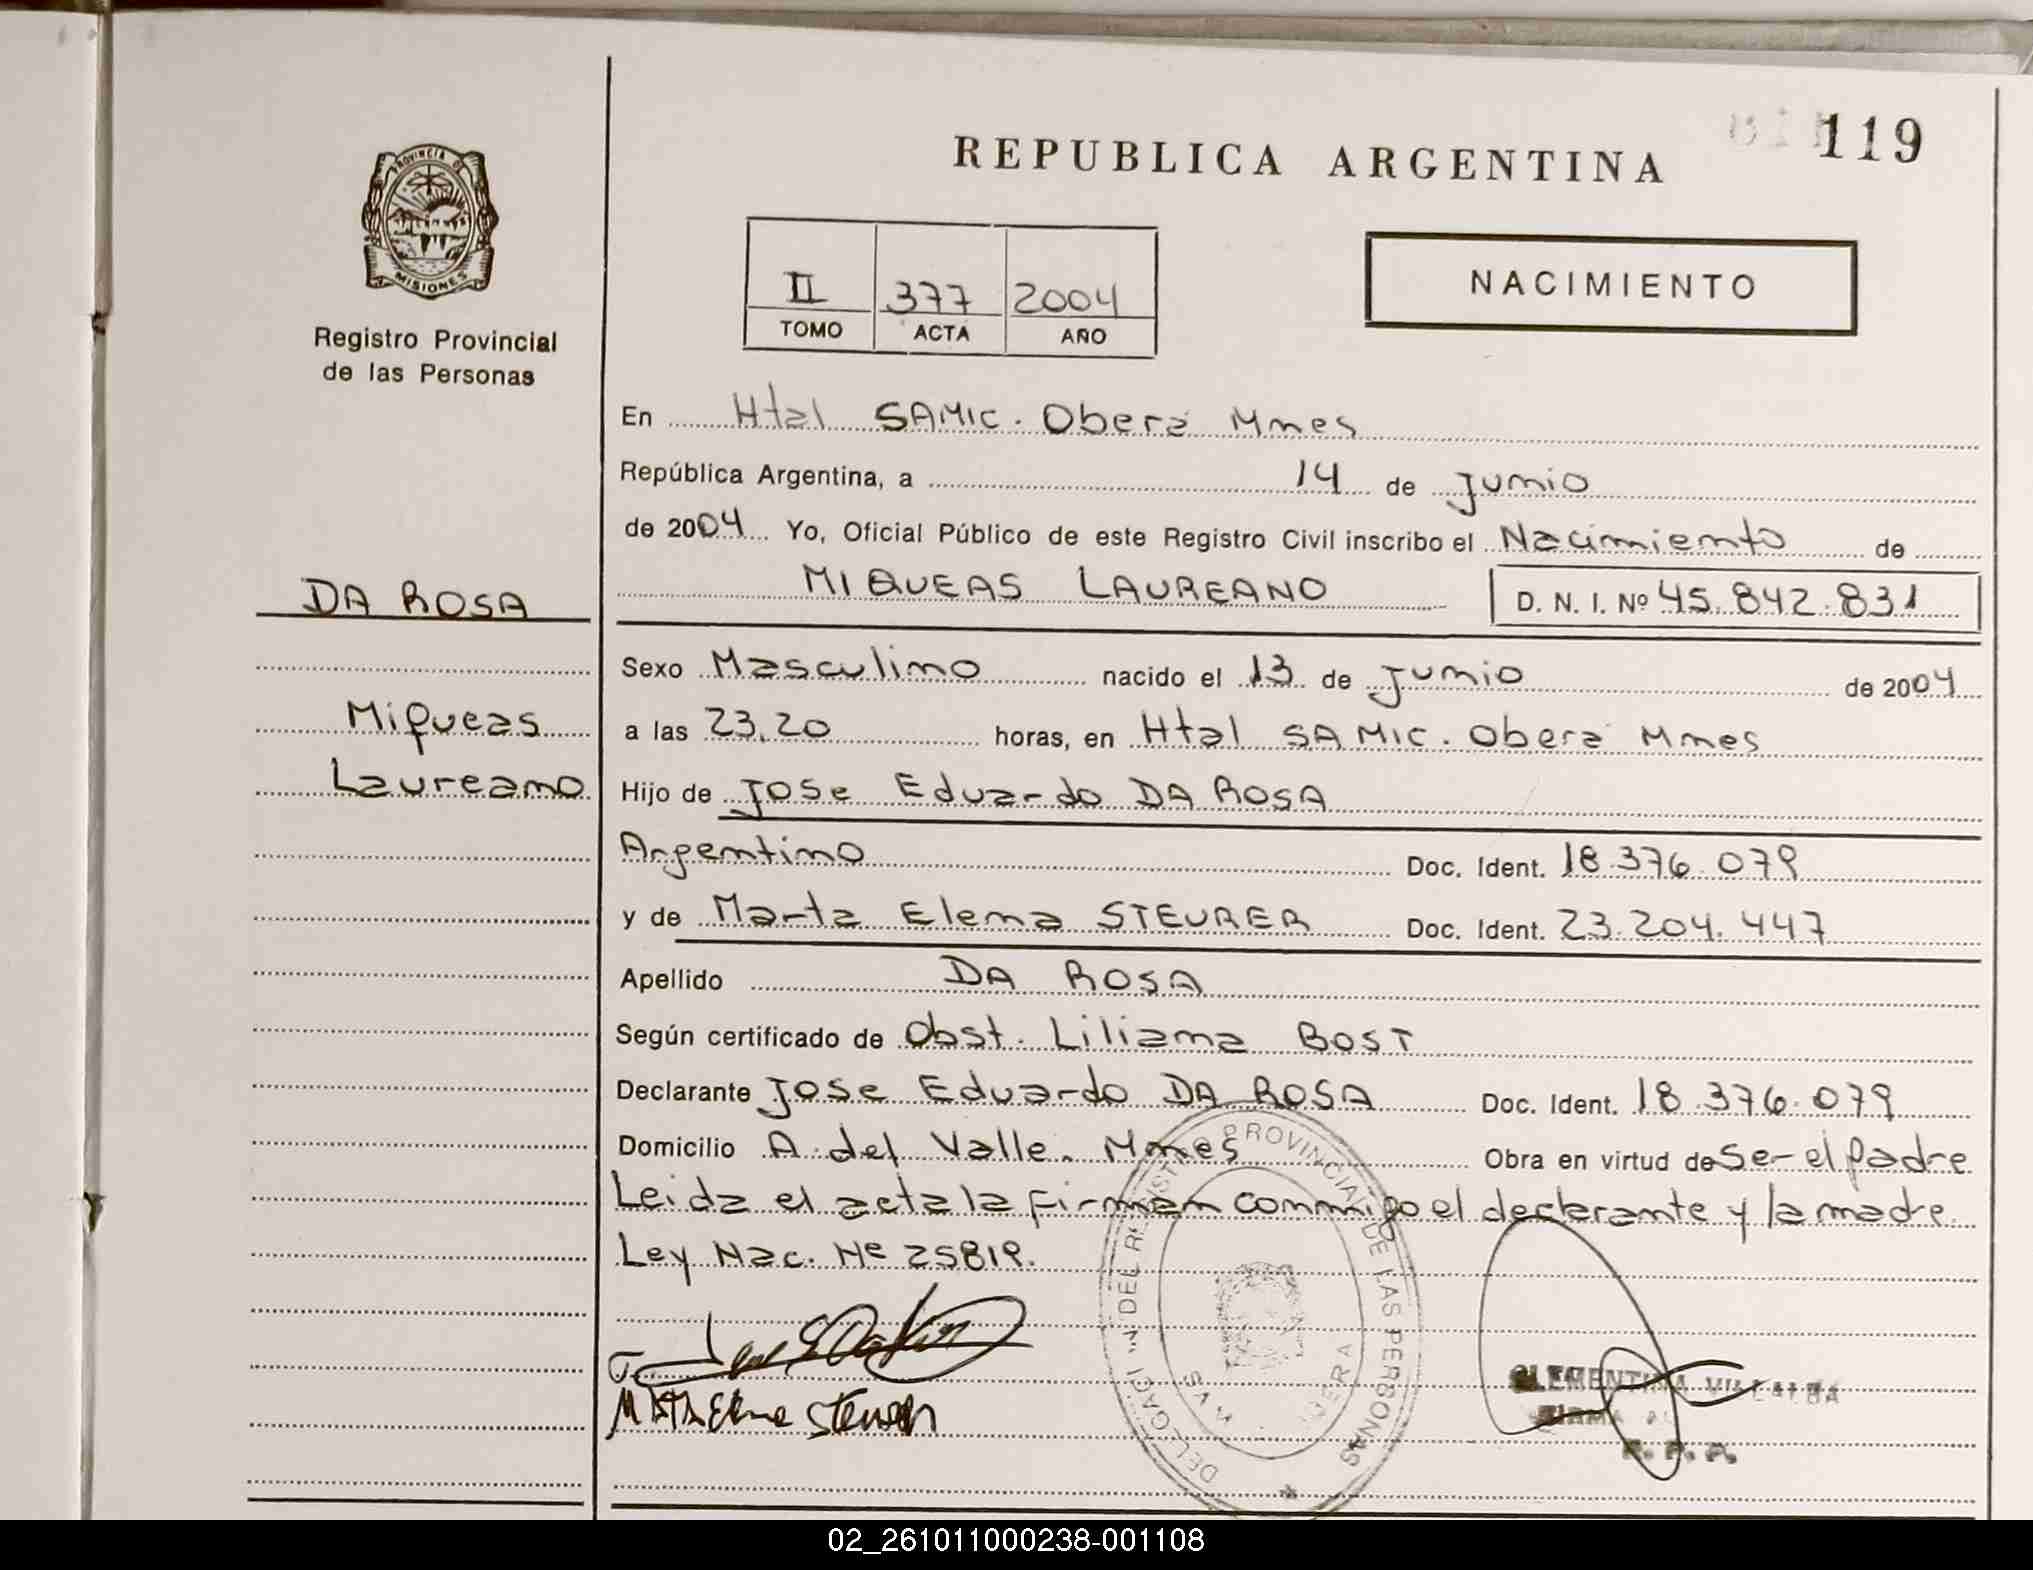 REPUBLICA ARGENTINA
119
PROVINCIA DE
MISIONES
Registro Provincial
de las Personas
II 377 2004
TOMO ACTA AÑO
NACIMIENTO
En Htal SAMIC. Oberá Mnes
República Argentina, a 14 de Junio
de 2004 Yo, Oficial Público de este Registro Civil inscribo el Nacimiento de
MIQUEAS LAUREANO D. N. I. Nº 45.842.831
DA ROSA
Sexo Masculino nacido el 13 de Junio de 2004
Miqueas
a las 23,20 horas, en Htal SAMIC. Oberá Mnes
Laureano
Hijo de Jose Eduardo DA ROSA
Argentino Doc. Ident. 18.376.079
y de Marta Elena STEURER Doc. Ident. 23.204.447
Apellido DA ROSA
Según certificado de Obst. Liliana BOST
Declarante Jose Eduardo DA ROSA Doc. Ident. 18.376.079
Domicilio A. del Valle. Mnes Obra en virtud de ser el padre
Leida el acta la firman conmigo el declarante y la madre
Ley Nac. Nº 25819.
DEL REGISTRO PROVINCIAL DE LAS PERSONAS
CLEMENTINA VILLALBA
FIRMA
R. P. P.
02_261011000238-001108